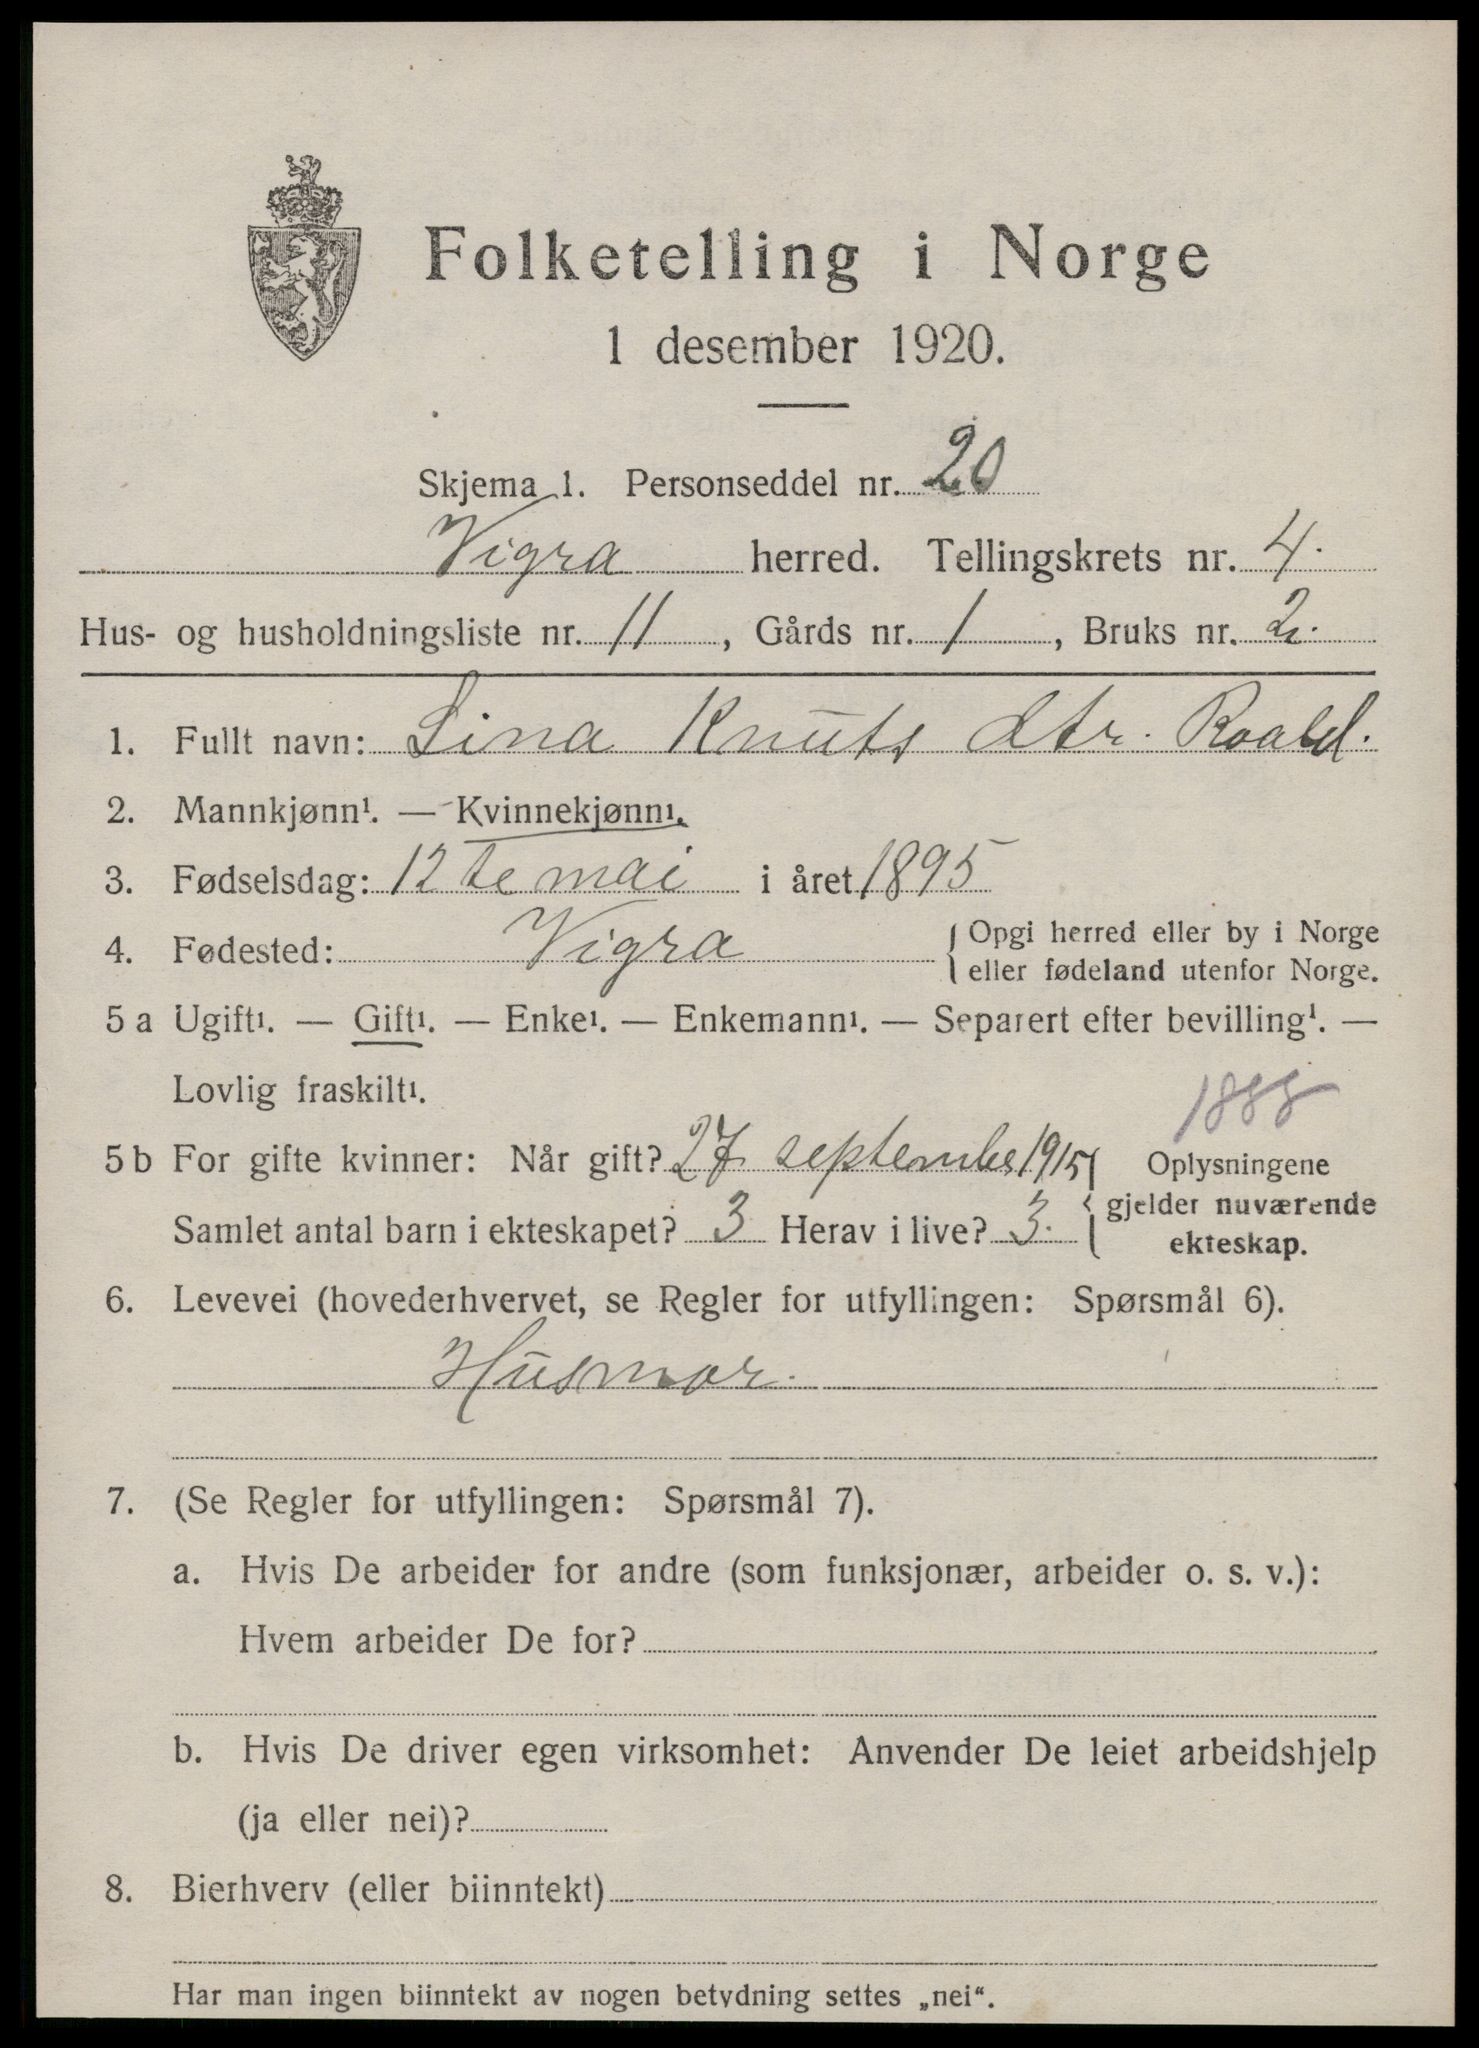 Folketelling i Norge
1 desember 1920.
Skjema 1. Personseddel nr. 20
Vigra herred. Tellingskrets nr. 4.
Hus- og husholdningsliste nr. 11, Gårds nr. 1, Bruks nr. 2.
1. Fullt navn: Lina Knuts dtr. Roald.
2. Mannkjønn¹. — Kvinnekjønn¹.
3. Fødselsdag: 12te mai i året 1895
4. Fødested: Vigra { Opgi herred eller by i Norge
eller fødeland utenfor Norge.
5 a Ugift¹. — Gift¹. — Enke¹. — Enkemann¹. — Separert efter bevilling¹. —
Lovlig fraskilt¹.
1888
5 b For gifte kvinner: Når gift? 27 september 1915 { Oplysningene
Samlet antal barn i ekteskapet? 3 Herav i live? 3. gjelder nuværende
ekteskap.
6. Levevei (hovederhvervet, se Regler for utfyllingen: Spørsmål 6).
Husmor.
7. (Se Regler for utfyllingen: Spørsmål 7).
a. Hvis De arbeider for andre (som funksjonær, arbeider o. s. v.):
Hvem arbeider De for?
b. Hvis De driver egen virksomhet: Anvender De leiet arbeidshjelp
(ja eller nei)?
8. Bierhverv (eller biinntekt)
Har man ingen biinntekt av nogen betydning settes „nei“.